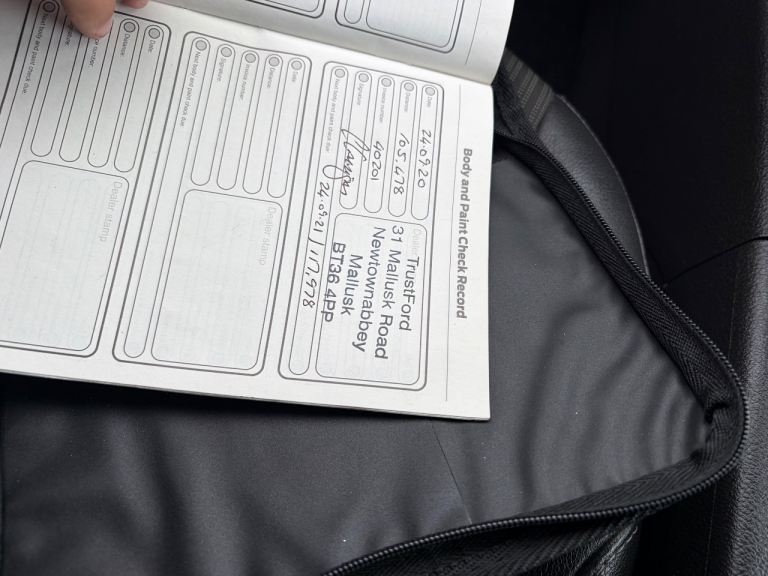 Body and Paint Check Record
Date: 24.09.20
Distance: 105,478
Invoice number: 40201
Signature:
Next body and paint check due: 24.09.21 / 117,978
TrustFord
31 Mallusk Road
Newtownabbey
Mallusk
BT36 4PP
Date:
Distance:
Invoice number:
Signature:
Next body and paint check due:
Dealer stamp
Date:
Distance:
number:
Next body and paint check due:
Dealer stamp